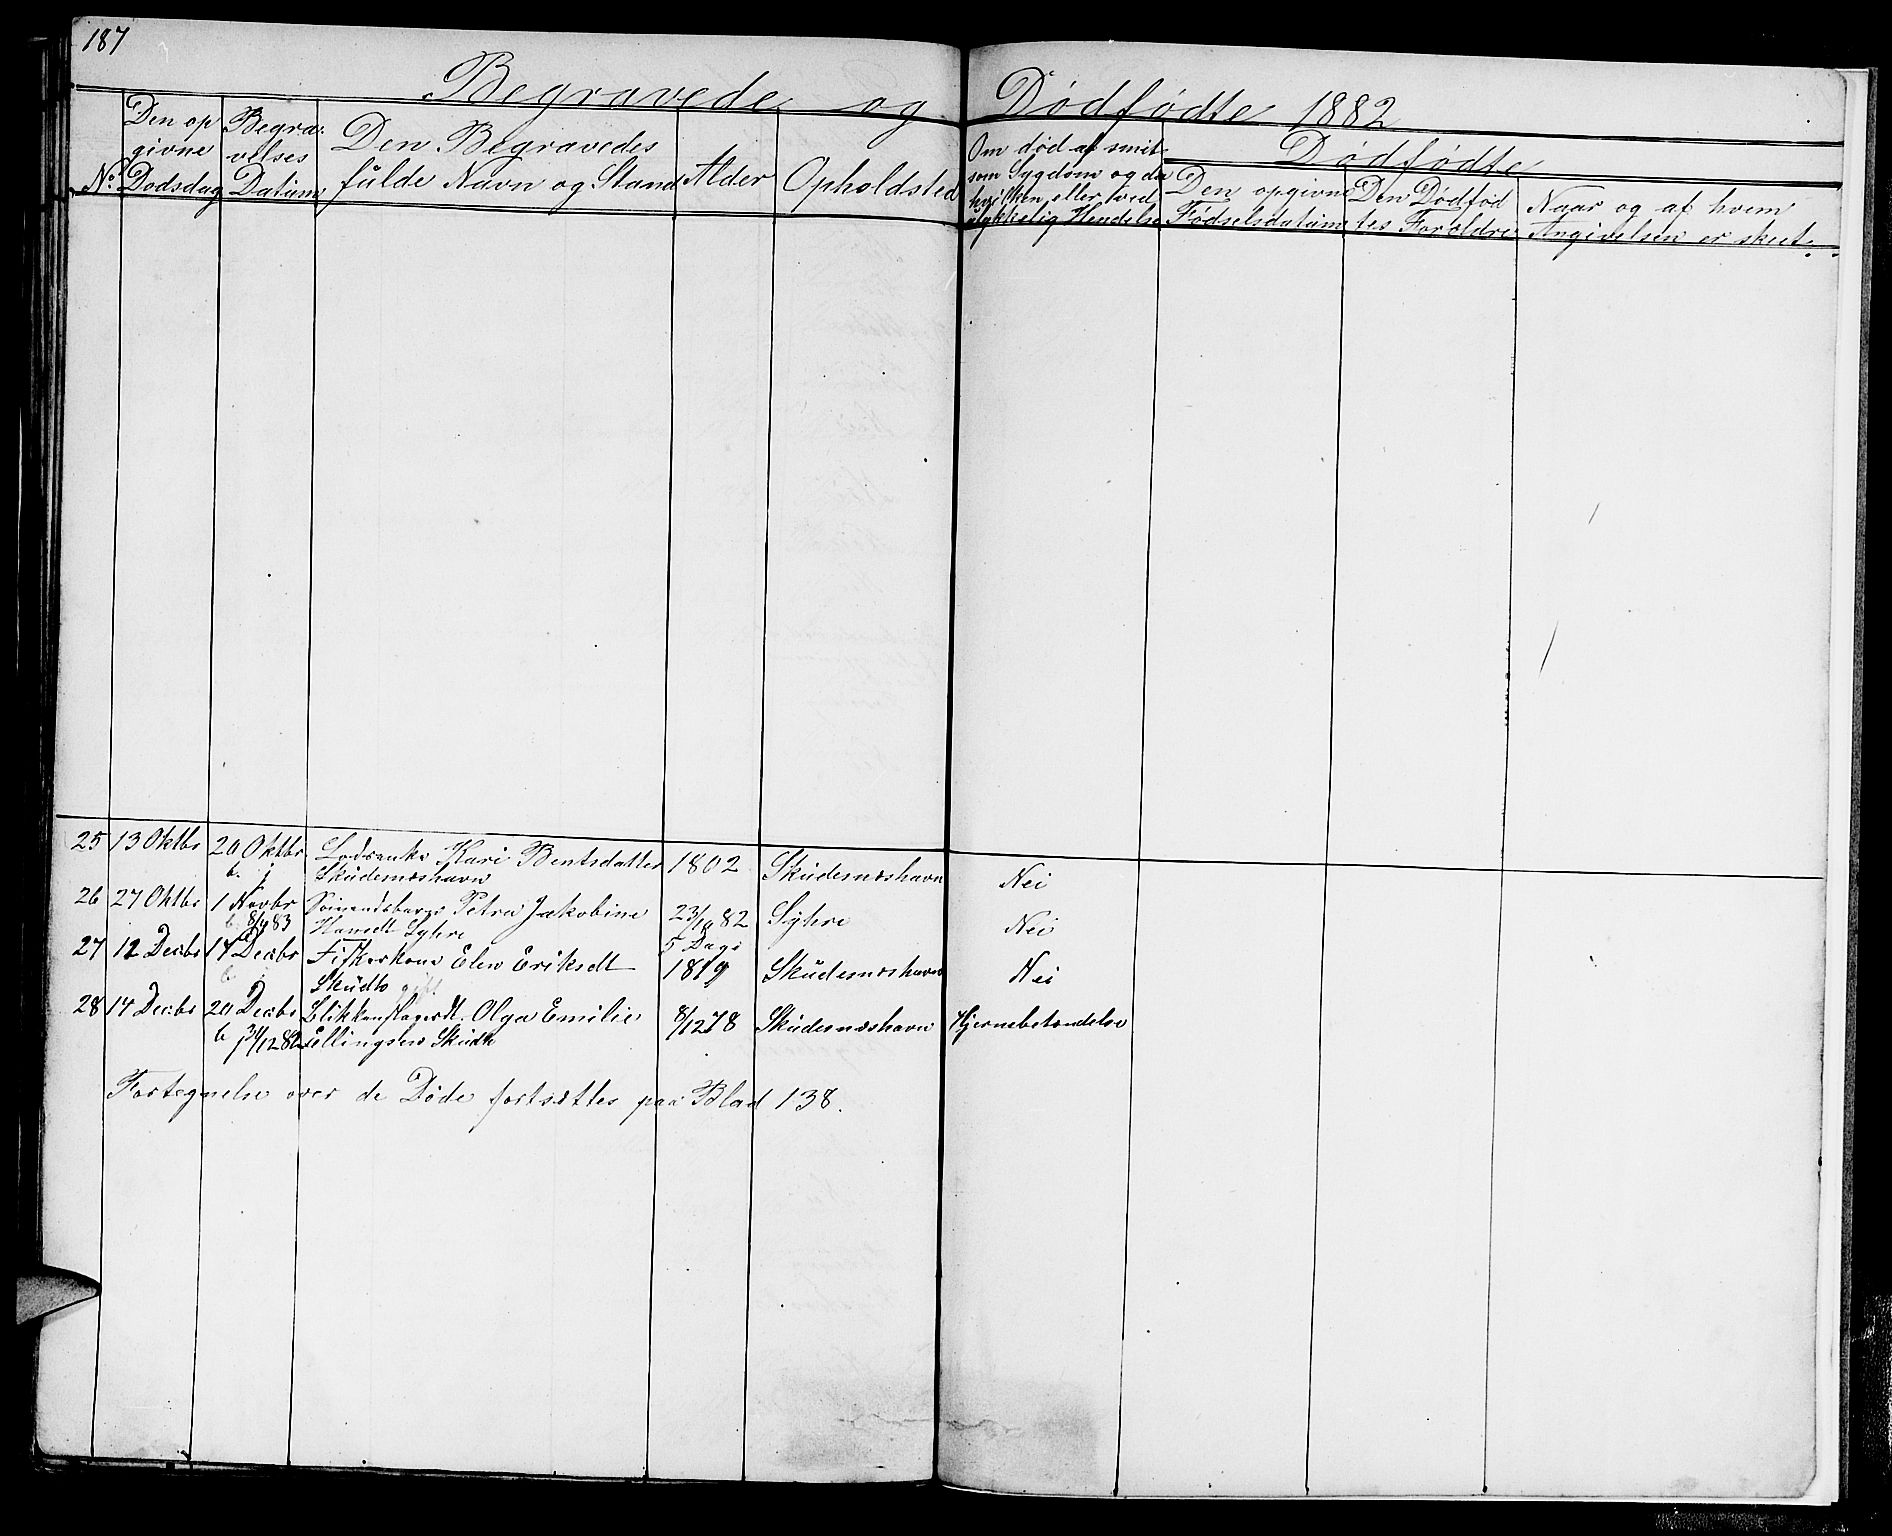 187
Begravede og Dødfødte 1882
No. Den opgivne Dødsdag Begravelses Datum Den Begravedes fulde Navn og Stand Alder Opholdsted
Om død af smitsom Sygdom og da hvilken, eller ved ulykkelig Hendelse
Dødfødte
Den opgivne Fødselsdatum Den Dødfødtes Forældre Naar og af hvem Angivelsen er skeet.
25 13 Oktbr 20 Oktbr Lodsenke Kari Bentsdatter 1802 Skudesneshavn Nei
Skudesneshavn
26 27 Oktbr 1 Novbr Petra Jakobine 23/10 82 Syhre Nei
b 83 Hansdt Syhre 5 Dage
27 12 Decbr 17 Decbr Fiskerkone Elen Eriksdt 1819 Skudesneshavn Nei
Skudh gift
28 14 Decbr 20 Decbr Blikkenslagerdt. Olga Emilie 8/12 78 Skudesneshavn Hjernebetændelse
b 31/12 82 Ellingsen Skudh
Fortegnelse over de Døde fortsættes paa Blad 138.